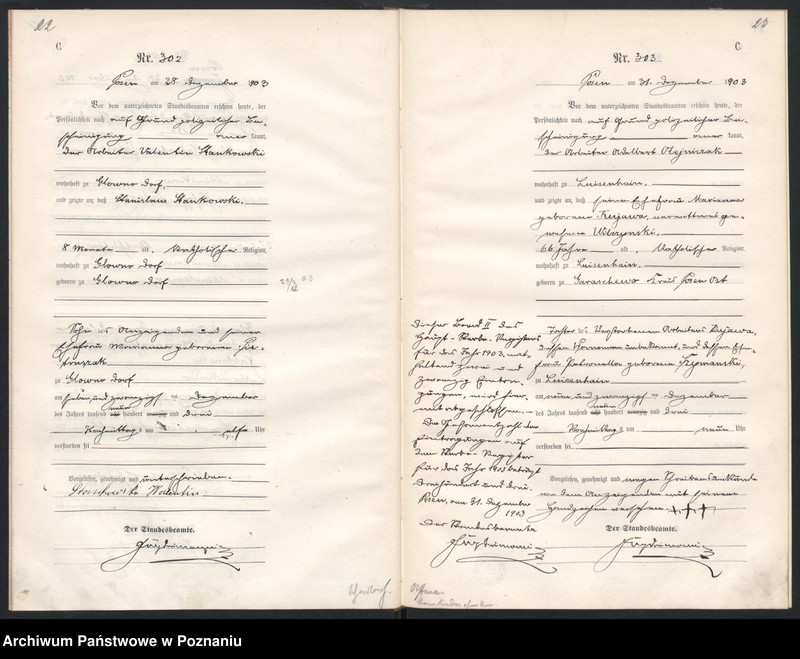 22
C.
Nr. 302
Posen am 28 Dezember 1903
Vor dem unterzeichneten Standesbeamten erschien heute, der
Persönlichkeit nach auf Grund polizeilicher Be-
scheinigung kannt,
der Arbeiter Valentin Stankowski
wohnhaft zu Glowno Dorf,
und zeigte an, daß Stanislaus Stankowski.
8 Monate alt, katholischer Religion,
wohnhaft zu Glowno Dorf
geboren zu Glowno Dorf
Sohn des Anzeigenden und seiner
Ehefrau Marianna geborenen Pie-
truszak
zu Glowno Dorf
am sieben und zwanzigsten Dezember
des Jahres tausend neun hundert und drei
Vormittags um elf Uhr
verstorben sei.
Vorgelesen, genehmigt und unterschrieben.
Walentin
Der Standesbeamte.
23
C.
Nr. 303
Posen am 31. Dezember 1903
Vor dem unterzeichneten Standesbeamten erschien heute, der
Persönlichkeit nach auf Grund polizeilicher Be-
scheinigung kannt,
der Arbeiter Adalbert Olejniczak
wohnhaft zu Luisenhain.
und zeigte an, daß seine Ehefrau Marianna
geborene Kujawa, verwittwet ge-
wesene Wilczynski.
66 Jahre alt, katholischer Religion,
wohnhaft zu Luisenhain.
geboren zu Garaschewo Kreis Posen Ost
Tochter des verstorbenen Arbeiters Kujawa,
dessen Vornamen unbekannt, und dessen Ehe-
frau Petronella geborene Szymanski,
zu Luisenhain
am neun und zwanzigsten Dezember
des Jahres tausend neun hundert und drei
Vormittags um neun Uhr
verstorben sei.
Vorgelesen, genehmigt und wegen Schreibensunkunde
von dem Anzeigenden mit seinem
Handzeichen versehen +++
Der Standesbeamte.
Dieser Band II des
Haupt-Sterbe-Registers
für das Jahr 1903, ent-
haltend und
zwanzig Eintra-
gungen, wird hier-
mit abgeschlossen.
Die Gesammtzahl der
Eintragungen auf
dem Sterbe-Register
für das Jahr 1903 beträgt
dreihundert und drei.
Posen, am 31. Dezember
1903
Der Standesbeamte
Archiwum Państwowe w Poznaniu